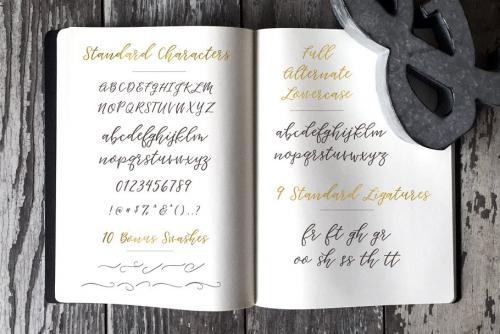 Standard Characters
ABCDEFGHIJKLM
NOPQRSTUVWXYZ
abcdefghijklm
nopqrstuvwxyz
0123456789
!@#$%^&*()..?
10 Bonus Swashes
Full
Alternate
Lowercase
abcdefghijklm
nopqrstuvwxyz
9 Standard Ligatures
fr ft gh gr
oo sh ss th tt